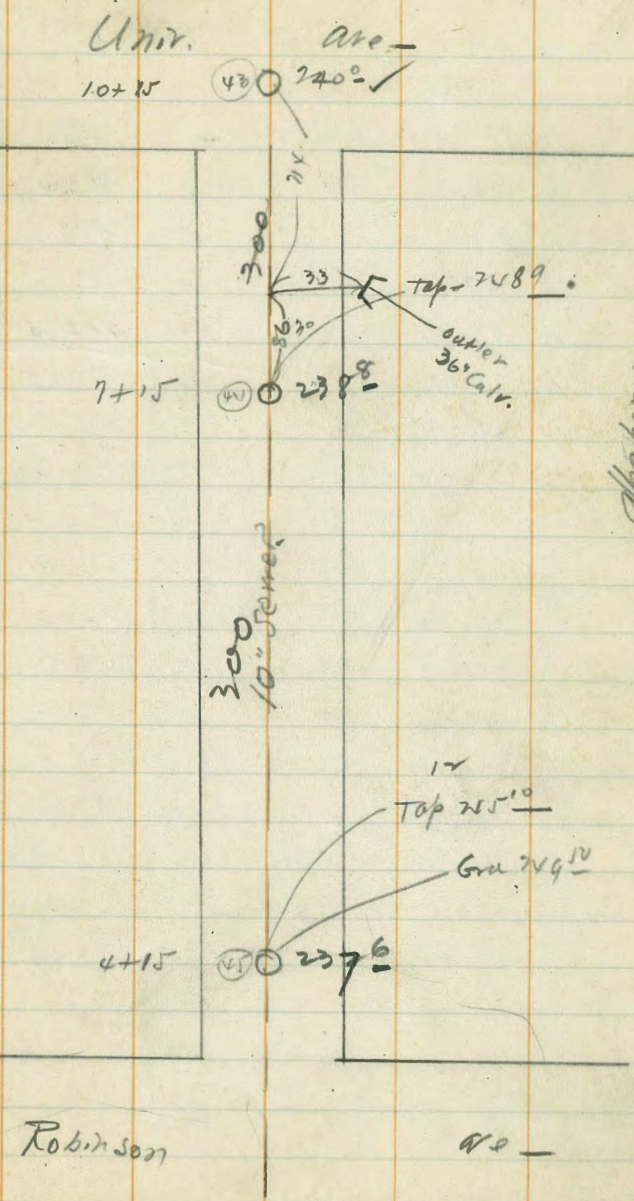 Univ. ave
10+15 43 240⁰ ✓
214
300
33 Top 248⁹
86
outlet
36" Culv.
7+15 238⁸
300
10" Sewer
12
Top 245¹⁰
Gra 249⁵⁰
4+15 45 237⁶
Robinson ave